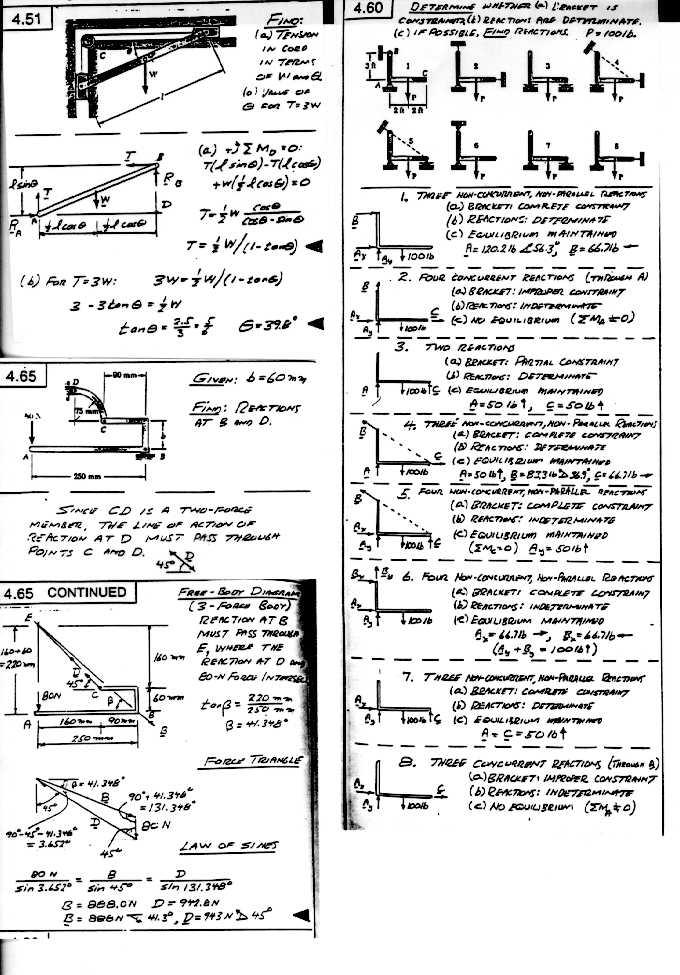 4.51
FIND:
(a) TENSION
IN CORD
IN TERMS
OF W AND θ
(b) VALUE OF
θ FOR T=3W
C
W
l
(a) +↺ΣM_D=0:
T(l sinθ)-T(l cosθ)
+W(½ l cosθ)=0
T=½W cosθ/(cosθ-sinθ)
T=½W/(1-tanθ)
T
B
R_B
l sinθ
T
W
D
R_A
A
½l cosθ
½l cosθ
(b) FOR T=3W: 3W=½W/(1-tanθ)
3-3tanθ=½W
tanθ=2.5/3=5/6 θ=39.8°
4.65
GIVEN: b=60mm
FIND: REACTIONS
AT B AND D.
90 mm
D
75 mm
C
b
A
B
250 mm
SINCE CD IS A TWO-FORCE
MEMBER, THE LINE OF ACTION OF
REACTION AT D MUST PASS THROUGH
POINTS C AND D.
D
45°
4.65 CONTINUED
FREE-BODY DIAGRAM
(3-FORCE BODY)
REACTION AT B
MUST PASS THROUGH
E, WHERE THE
REACTION AT D AND
80-N FORCE INTERSECT
tanβ=220 mm/250 mm
β=41.348°
E
160+60
=220mm
160 mm
D
45°
C
80N
β
60mm
A
160mm
90mm
B
B
250 mm
FORCE TRIANGLE
β=41.348°
B
90°+41.348°
=131.348°
45°
D
80 N
90°-45°-41.348°
=3.652°
45°
LAW OF SINES
80 N/sin 3.652° = B/sin 45° = D/sin 131.348°
B=888.0N D=942.8N
B=888N 41.3°, D=943N 45°
4.60
DETERMINE WHETHER (a) BRACKET IS
CONSTRAINED, (b) REACTIONS ARE DETERMINATE.
(c) IF POSSIBLE, FIND REACTIONS. P=100lb.
B
3 ft
1
C
A
P
2 ft
2 ft
2
P
3
P
4
P
5
P
6
P
7
P
8
P
1. THREE NON-CONCURRENT, NON-PARALLEL REACTIONS
(a) BRACKET: COMPLETE CONSTRAINT
(b) REACTIONS: DETERMINATE
(c) EQUILIBRIUM MAINTAINED
A=120.2 lb ∠56.3°, B=66.7lb ←
B
Ax
Ay
100lb
2. FOUR CONCURRENT REACTIONS (THROUGH A)
(a) BRACKET: IMPROPER CONSTRAINT
(b) REACTIONS: INDETERMINATE
(c) NO EQUILIBRIUM (ΣM_A≠0)
B
Ax
Ay
100lb
C
3. TWO REACTIONS
(a) BRACKET: PARTIAL CONSTRAINT
(b) REACTIONS: DETERMINATE
(c) EQUILIBRIUM MAINTAINED
A=50 lb↑, C=50lb↑
A
100lb
C
4. THREE NON-CONCURRENT, NON-PARALLEL REACTIONS
(a) BRACKET: COMPLETE CONSTRAINT
(b) REACTIONS: DETERMINATE
(c) EQUILIBRIUM MAINTAINED
A=50 lb↑, B=83.3lb 36.9°, C=66.7lb →
B
A
100lb
C
5. FOUR NON-CONCURRENT, NON-PARALLEL REACTIONS
(a) BRACKET: COMPLETE CONSTRAINT
(b) REACTIONS: INDETERMINATE
(c) EQUILIBRIUM MAINTAINED
(ΣM_C=0) Ay=50lb↑
B
Ax
Ay
100lb
C
6. FOUR NON-CONCURRENT, NON-PARALLEL REACTIONS
(a) BRACKET: COMPLETE CONSTRAINT
(b) REACTIONS: INDETERMINATE
(c) EQUILIBRIUM MAINTAINED
Ax=66.7lb →, Bx=66.7lb ←
(Ay+By=100lb↑)
Bx
By
Ax
Ay
100lb
7. THREE NON-CONCURRENT, NON-PARALLEL REACTIONS
(a) BRACKET: COMPLETE CONSTRAINT
(b) REACTIONS: DETERMINATE
(c) EQUILIBRIUM MAINTAINED
A=C=50lb↑
Ax
Ay
100lb
C
8. THREE CONCURRENT REACTIONS (THROUGH A)
(a) BRACKET: IMPROPER CONSTRAINT
(b) REACTIONS: INDETERMINATE
(c) NO EQUILIBRIUM (ΣM_A≠0)
Ax
Ay
100lb
C